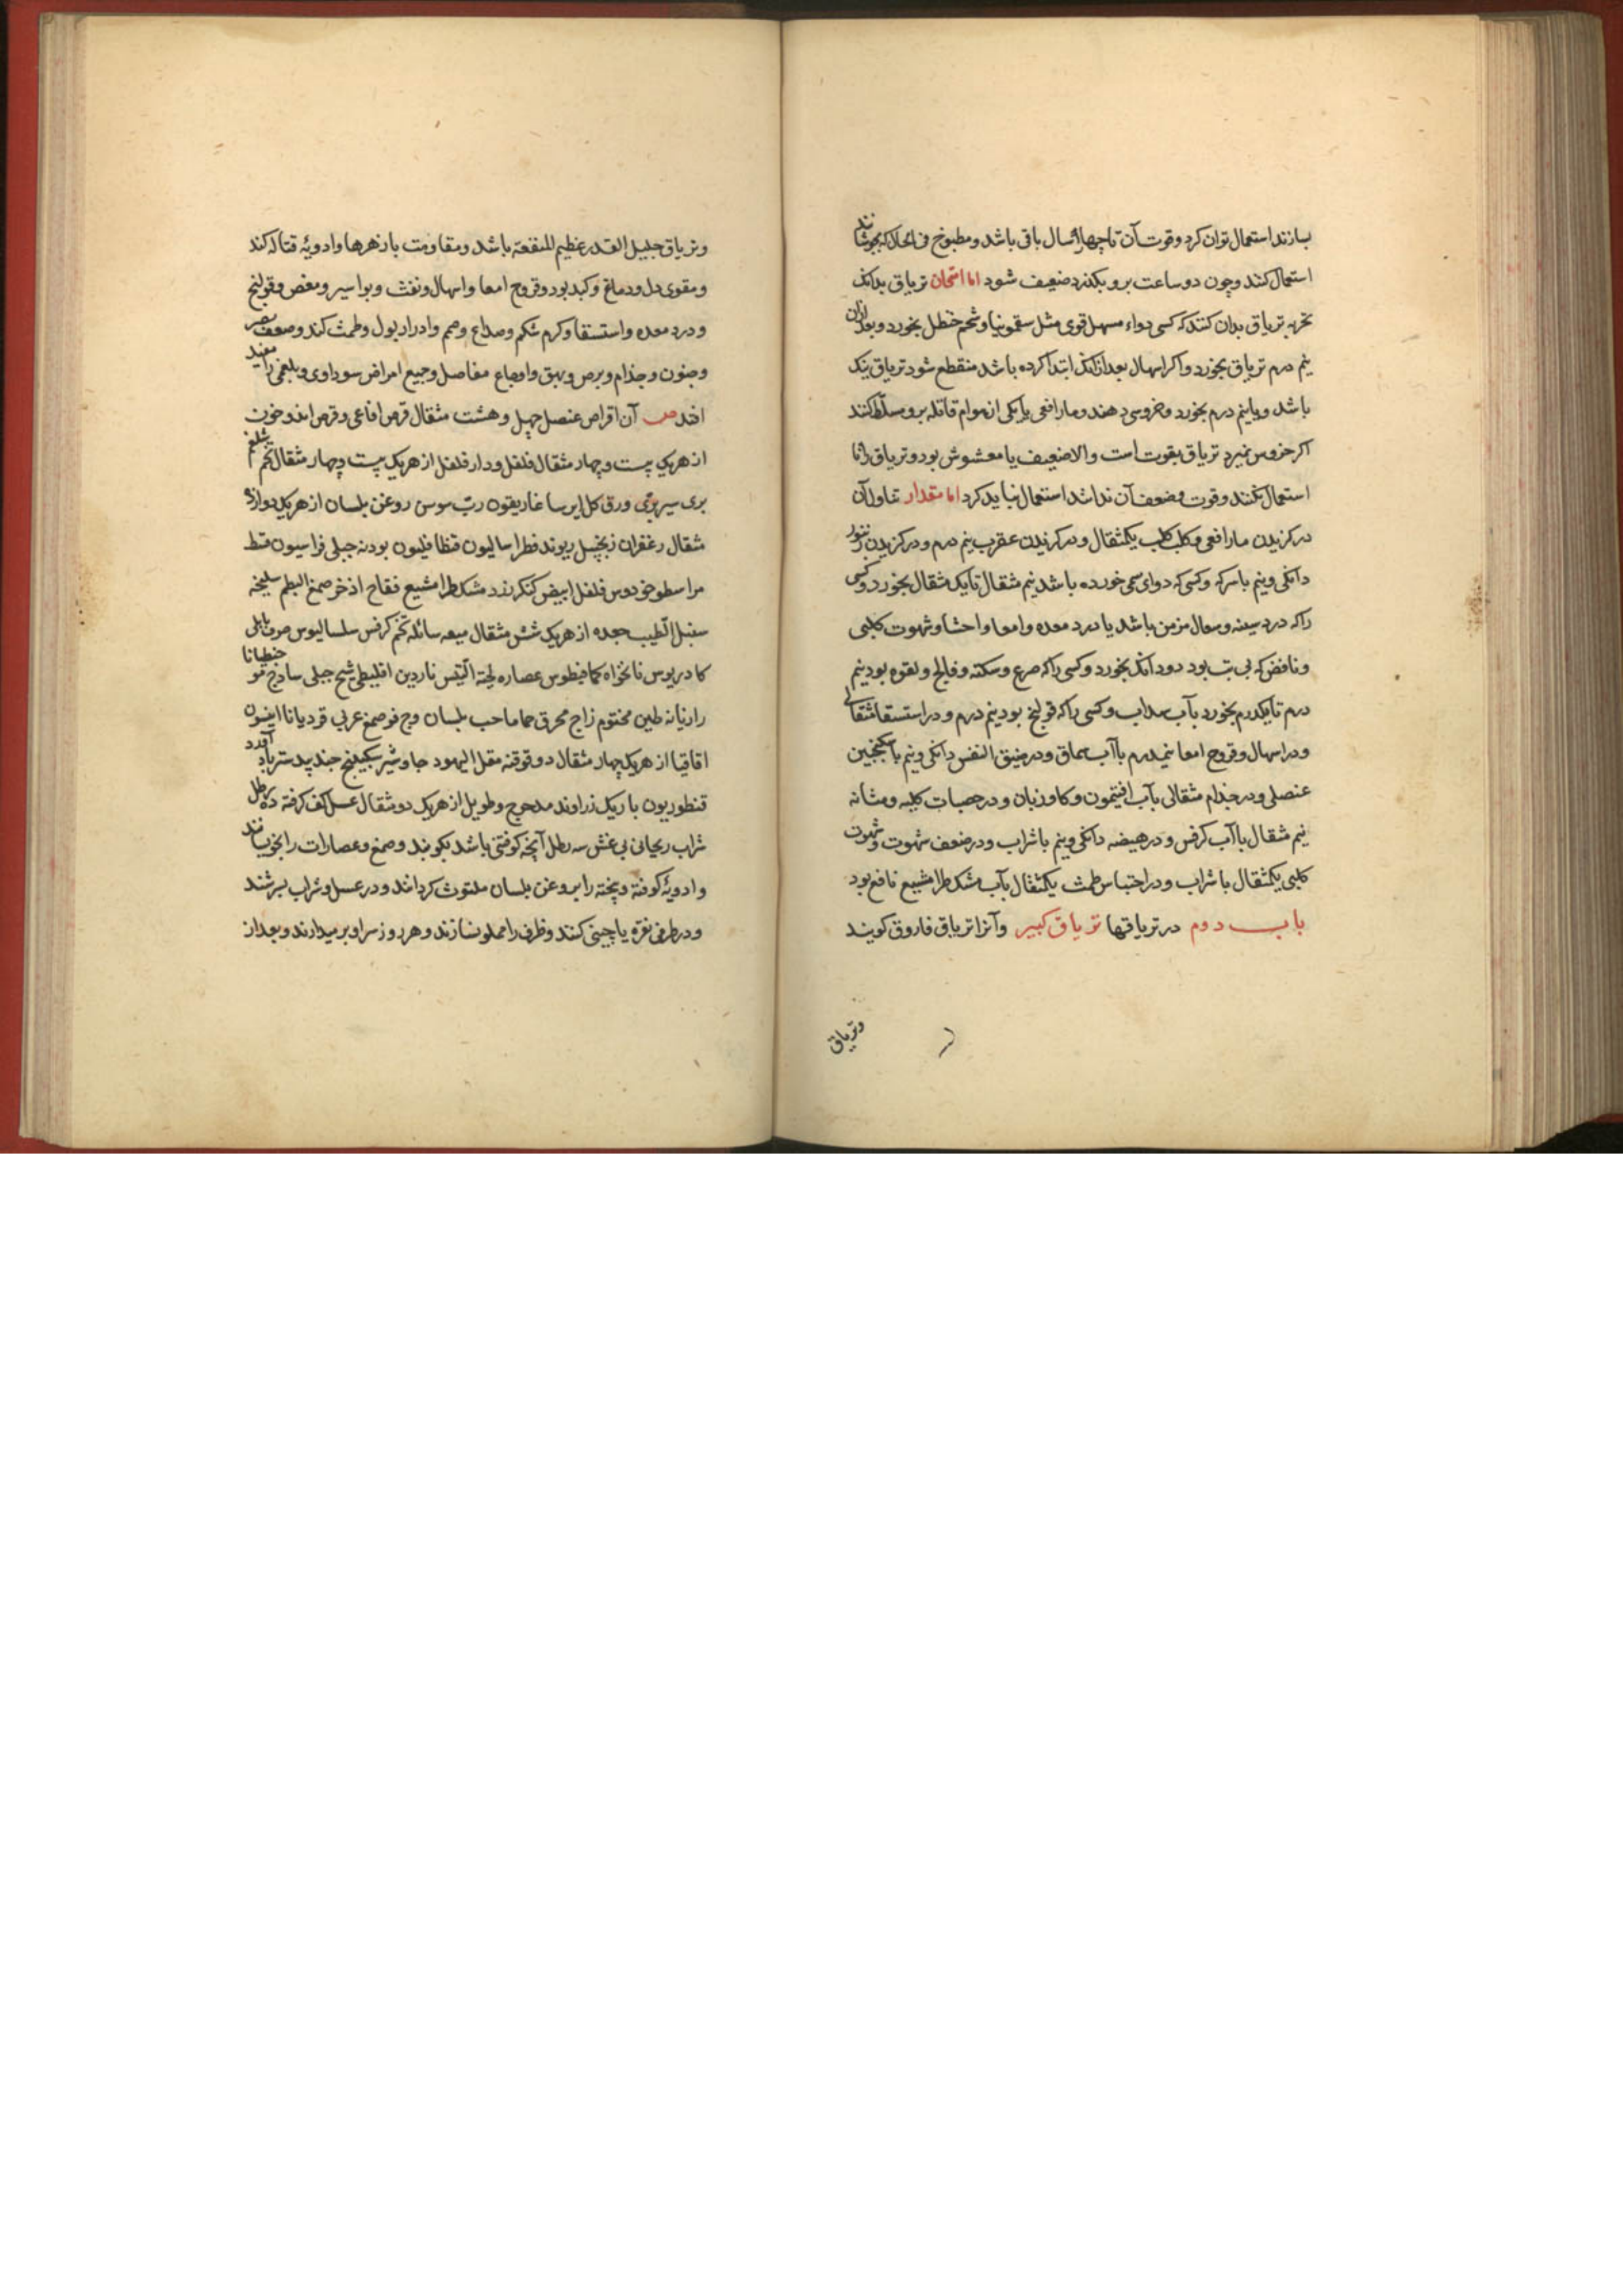 بسازند استعمال توان کرد و قوت آن تا چهار سال باقی باشد و مطبوخ فی الحال که بجوشانند
استعمال کنند و چون دو ساعت برو بکذرد ضعیف شود اما امتحان تریاق بدانک
تجربه تریاق بدان کنند که کسی دواء مسهل قوی مثل سقمونیا و شحم حنظل بخورد و بعد ازان
نیم درم تریاق بخورد و اکر اسهال بعد ازانک ابتدا کرده باشد منقطع شود تریاق نیک
باشد و یا نیم درم بخورد خروسی دهند و مار افعی یا یکی از هوام قاتله برو مسلط کنند
اکر خروس نمیرد تریاق بقوت است و الا ضعیف یا مغشوش بود و تریاق را تا
استعمال نکنند و قوت و ضعف آن ندانند استعمال نباید کرد اما مقدار تناول آن
در کزیدن مار افعی و کلب کلب یکمثقال و در کزیدن عقرب نیم درم و در کزیدن زنبور
دانکی و نیم باسرکه و کسی که دوای سمی خورده باشد نیم مثقال تا یک مثقال بخورد و کسی
را که درد سینه و سعال مزمن باشد یا درد معده و امعا و احشا و شهوت کلبی
و نافض که بی تب بود دو دانک بخورد و کسی را که صرع و سکته و فالج و لقوه بود نیم
درم تا یکدرم بخورد بآب سداب و کسی را که قولنج بود نیم درم و در استسقا مثقالی
و در اسهال و قروح امعا نیمدرم باآب سماق و در ضیق النفس دانکی و نیم باسکنجبین
عنصلی و در جذام مثقالی بآب افتیمون و کاوزبان و در حصیات کلیه و مثانه
نیم مثقال باآب کرفس و در هیضه دانکی و نیم باشراب و در ضعف شهوت و شهوت
کلبی یکمثقال باشراب و در احتباس طمث یکمثقال بآب مشکطرامشیع نافع بود
باب دوم در تریاقها تریاق کبیر و آنرا تریاق فاروق کویند
و تریاق
و تریاق جلیل القدر عظیم المنفعة باشد و مقاومت بازهرها و ادویهٔ قتاله کند
و مقوی دل و دماغ و کبد بود و قروح امعا و اسهال و نفث و بواسیر و مغص و قولنج
و درد معده و استسقا و کرم شکم و صداع و صمم و ادرار بول و طمث کند و ضعف بصر
و جنون و جذام و برص و بهق و اوجاع مفاصل و جمیع امراض سوداوی و بلغمی را مفید
افتد ص آن اقراص عنصل چهل و هشت مثقال قرص افاعی و قرص اندوخون
از هریک بیست و چهار مثقال فلفل و دار فلفل از هریک بیست و چهار مثقال تخم شلغم
بری سیر بری ورق کل ایرسا غاریقون رب سوس روغن بلسان از هریک دوازده
مثقال زعفران زنجبیل ریوند فطراسالیون قنطافیلون بودنه جبلی فراسیون قسط
مر اسطوخودوس فلفل ابیض کنکرزد مشکطرامشیع فقاح اذخر صمغ البطم سلیخه
سنبل الطیب جعده از هریک شش مثقال میعه سائله تخم کرفس سلسالیوس حرف بابلی
کادریوس نانخواه کمافیطوس عصاره لحیة التیس ناردین اقلیطی شیح جبلی ساذج مو جنطیانا
رازیانه طین مختوم زاج محرق حماما حب بلسان وج فو صمغ عربی قردمانا انیسون
اقاقیا از هریک چهار مثقال دوقو قنه مقل الیهود جاوشیر سکبینج جندبیدستر
قنطوریون باریک زراوند مدحرج و طویل از هریک دو مثقال عسل کف کرفته ده رطل
شراب ریحانی بی غش سه رطل آنچه کوفتنی باشد بکوبند و صمغ و عصارات را بخویسانند
و ادویهٔ کوفته و پخته را بروغن بلسان ملتوث کردانند و در عسل و شراب بسرشند
و در ظرفی نقره یا چینی کنند و ظرف را مملو نسازند و هر روز سر او برمیدارند و بعد از